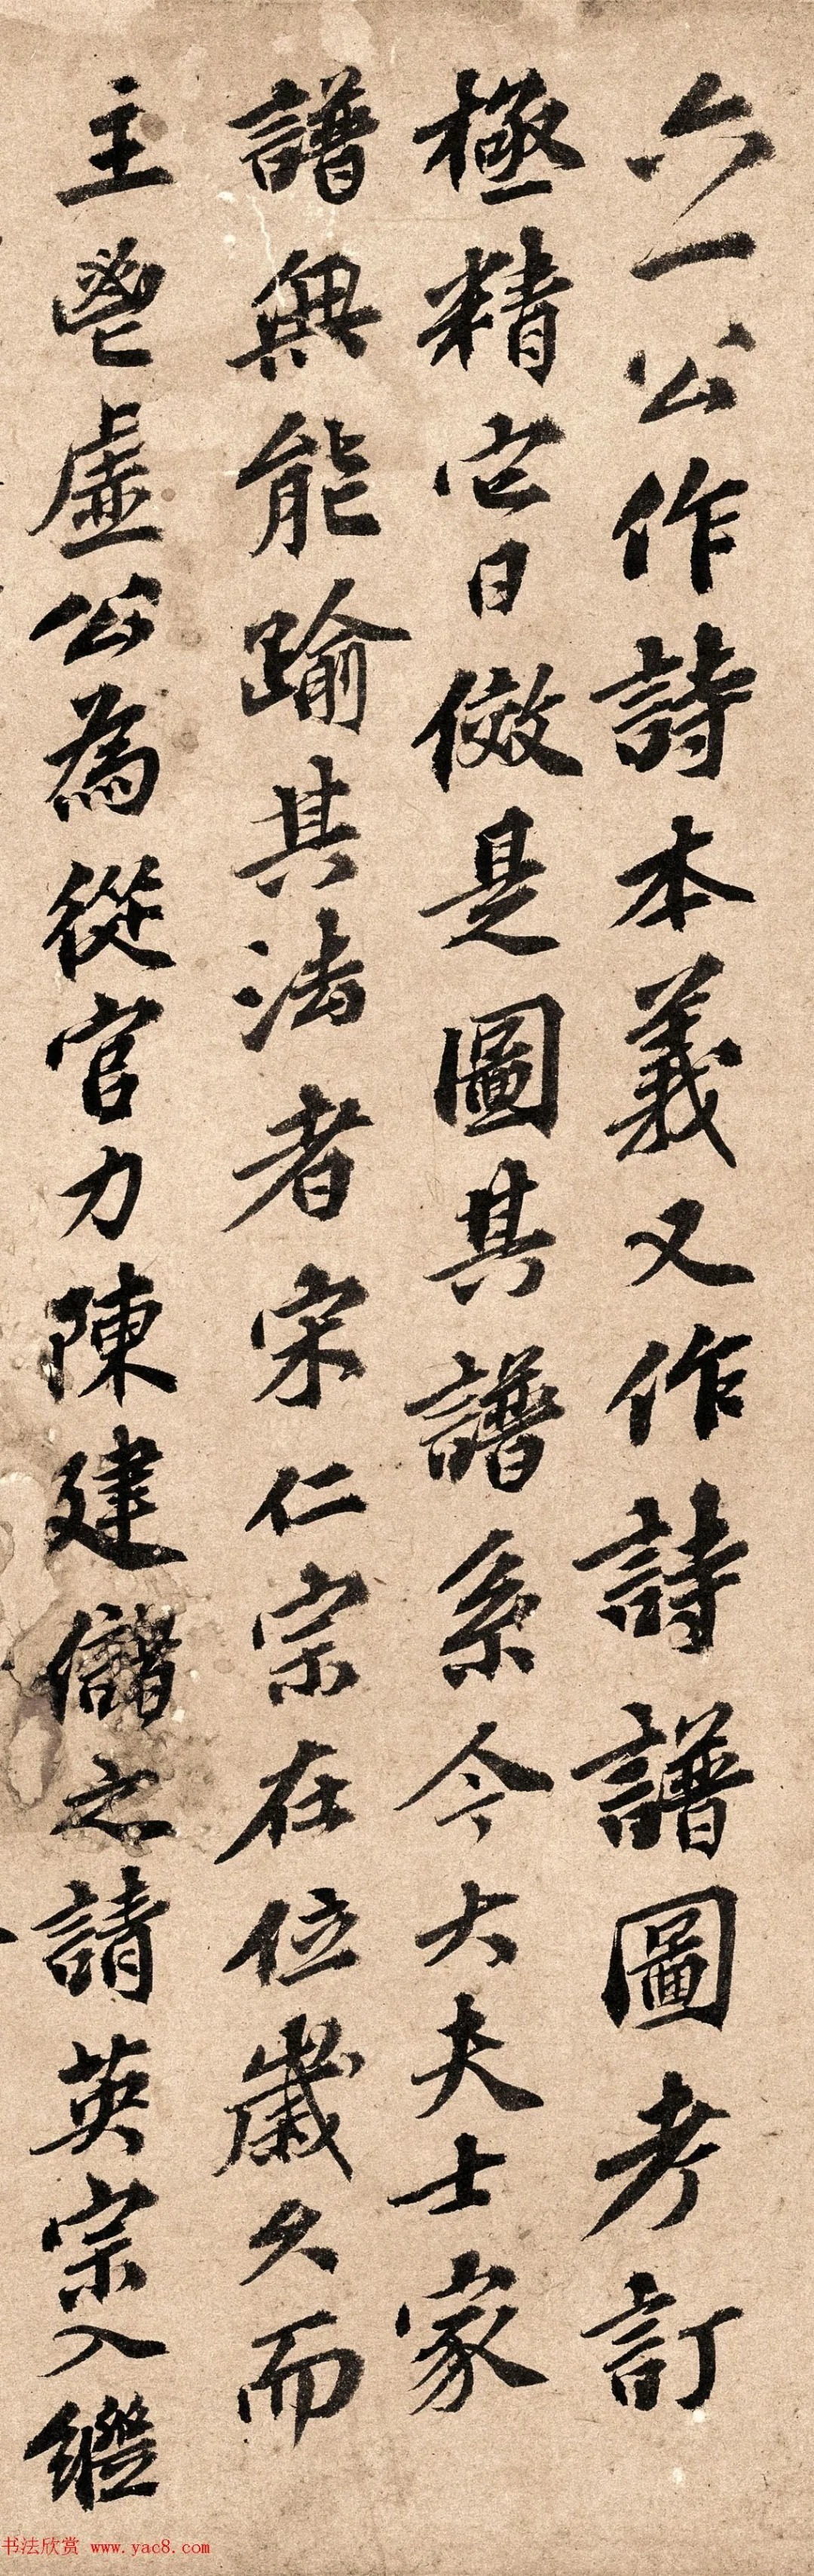 六一公作詩本義又作詩譜圖考訂
極精它日傚是圖其譜系今大夫士家
譜無能踰其法者宋仁宗在位歲久而
主鬯虛公為從官力陳建儲之請英宗入繼
书法欣赏 www.yac8.com